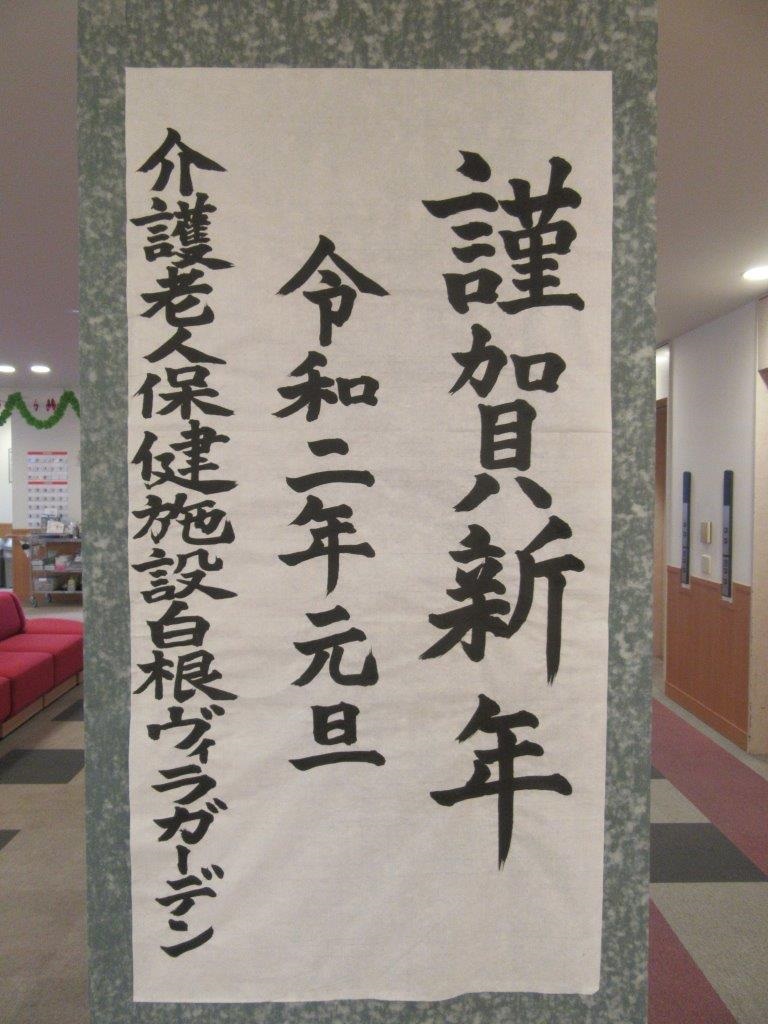 謹賀新年
令和二年元旦
介護老人保健施設白根ヴィラガーデン